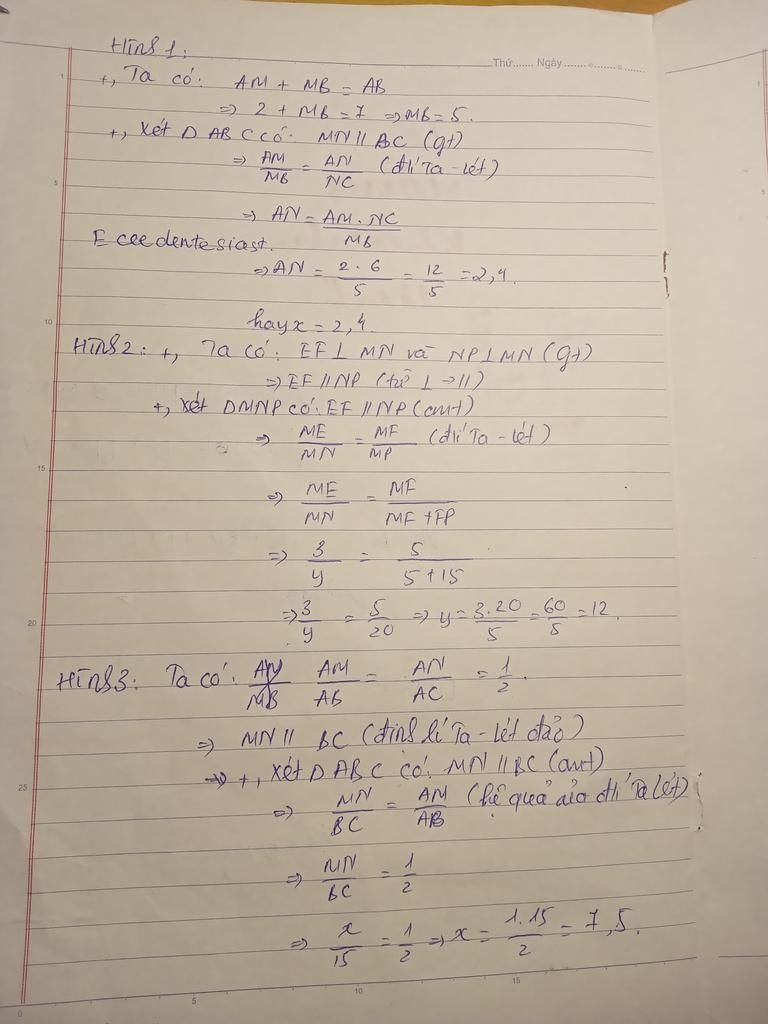 Hình 1:
Thứ....... Ngày.....................
+, Ta có: AM + MB = AB
=> 2 + MB = 7 => MB = 5.
+, Xét D ABC có: MN // BC (gt)
=> AM/MB = AN/NC (đlí Ta-lét)
=> AN = AM.NC/MB
=> AN = 2.6/5 = 12/5 = 2,4.
hay x = 2,4.
Hình 2: +, Ta có: EF ⊥ MN và NP ⊥ MN (gt)
=> EF // NP (từ ⊥ -> //)
+, Xét DMNP có: EF // NP (cmt)
=> ME/MN = MF/MP (đlí Ta-lét)
=> ME/MN = MF/MF + FP
=> 3/y = 5/5 + 15
=> 3/y = 5/20 => y = 3.20/5 = 60/5 = 12.
Hình 3: Ta có: AM/AB = AN/AC = 1/2.
=> MN // BC (định lí Ta-lét đảo)
+, Xét D ABC có: MN // BC (cmt)
=> MN/BC = AM/AB (hệ quả của đlí Ta lét)
=> MN/BC = 1/2
=> x/15 = 1/2 => x = 1.15/2 = 7,5.
1
5
10
15
20
25
0
5
10
15